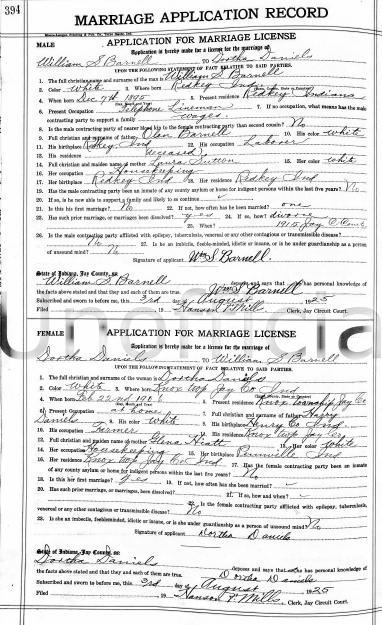 394
MARRIAGE APPLICATION RECORD
MALE APPLICATION FOR MARRIAGE LICENSE
Application is hereby made for a license for the marriage of
William S Barnell TO Dortha Daniels
UPON THE FOLLOWING STATEMENT OF FACT RELATIVE TO SAID PARTIES.
1. The full christian and surname of the man is William S Barnell
2. Color White 3. Where born Redkey Ind
4. When born Dec 7th 5. Present residence Redkey Indiana
6. Present Occupation Telephone Lineman 7. If no occupation, what means has the male
contracting party to support a family wages
8. Is the male contracting party of nearer blood kin to the female contracting party than second cousins? No
9. Full christian and surname of father Barnell 10. His color white
11. His birthplace Redkey Ind 12. His occupation Laborer
13. His residence deceased
14. Full christian and maiden name of mother Laura Sutton 15. Her color white
16. Her occupation Housekeeping
17. Her birthplace Redkey Ind 18. Her residence Redkey Ind
19. Has the male contracting party been an inmate of any county asylum or home for indigent persons within the last five years? No
20. If so, is he now able to support a family and likely to so continue
21. Is this his first marriage? No 22. If not, how often has he been married? one
23. Have such prior marriage, or marriages been dissolved? yes 24. If so, how? divorce
25. When? 1915 Jay C Court
26. Is the male contracting party afflicted with epilepsy, tuberculosis, venereal or any other contagious or transmissible disease?
No 27. Is he an imbecile, feeble-minded, idiotic or insane, or is he under guardianship as a person
of unsound mind? No
Signature of applicant Wm S Barnell
State of Indiana, Jay County, ss:
William S Barnell deposes and says that he has personal knowledge of
the facts above stated and that they and each of them are true. Barnell
Subscribed and sworn to before me, this 3rd day of August 1925
Filed 19 Clerk, Jay Circuit Court.
FEMALE APPLICATION FOR MARRIAGE LICENSE
Application is hereby made for a license for the marriage of
Dortha Daniels TO William S Barnell
UPON THE FOLLOWING STATEMENT OF FACT RELATIVE TO SAID PARTIES.
1. The full christian and surname of the woman is Dortha Daniels
2. Color White 3. Where born Knox Twp Jay Co Ind
4. When born Feb 22nd 5. Present residence Knox Township Jay Co
6. Present Occupation at home 7. Full christian and surname of father Harry
Daniels 8. His color White 9. His birthplace Henry Co Ind
10. His occupation Farmer 11. His residence Knox Twp Jay Co
12. Full christian and maiden name of mother Hiatt 13. Her color White
14. Her occupation Housekeeping 15. Her birthplace Ind
16. Her residence Knox Twp Jay Co Ind 17. Has the female contracting party been an inmate
of any county asylum or home for indigent persons within the last five years? No
18. Is this her first marriage? yes 19. If not, how often has she been married?
20. Has such prior marriage, or marriages, been dissolved? 21. If so, how, and when?
22. Is the female contracting party afflicted with epilepsy, tuberculosis,
venereal or any other contagious or transmissible disease? No
23. Is she an imbecile, feeble-minded, idiotic or insane, or is she under guardianship as a person of unsound mind? No
Signature of applicant Dortha Daniels
State of Indiana, Jay County, ss:
Dortha Daniels deposes and says that she has personal knowledge of
the facts above stated and that they and each of them are true. Dortha Daniels
Subscribed and sworn to before me, this 3rd day of August 1925
Filed 19 Clerk, Jay Circuit Court.